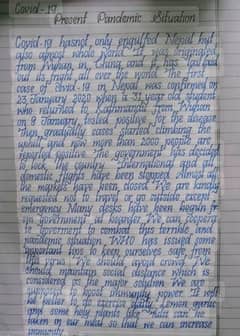 Covid-19
Present Pandemic Situation
Covid-19 hasnot only engulfed Nepal but
also almost whole World. It was originated
from Wuhan, in China, and it has spread
out its fright all over the world. The first
case of covid-19 in Nepal was confirmed on
23 January 2020 when a 31 year old student
who returned to Kathmandu from Wuhan
on 9 January, tested positive for the disease
Then, gradually cases started climbing the
uphill, and now more than 2000 people are
reported positive. The government has decided
to lock the country. International and all
domestic flights have been stopped. Almost all
the markets have been closed. We are kindly
requested not to travel or go outside except
emergency. Many desks have been
government We can
government to combat this terrible and
pandemic situation. WHO has issued some
important tips to keep ourselves safe from
this virus. We should avoid crowd. We
should maintain social distance which is
considered as the major solution. We are
supposed to boost immunity power. It will
be better to
and some help plants like can be
taken in our meal so that we can increase
immunity